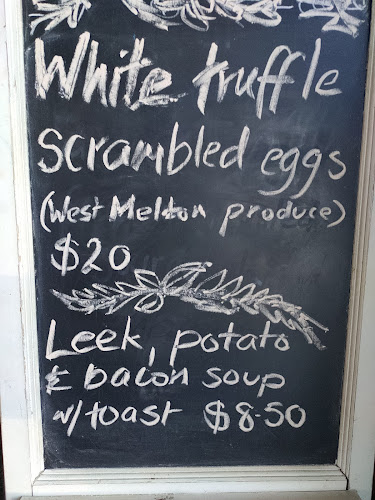 White truffle
scrambled eggs
(West Melton produce)
$20
Leek, potato
& bacon soup
w/toast $8.50